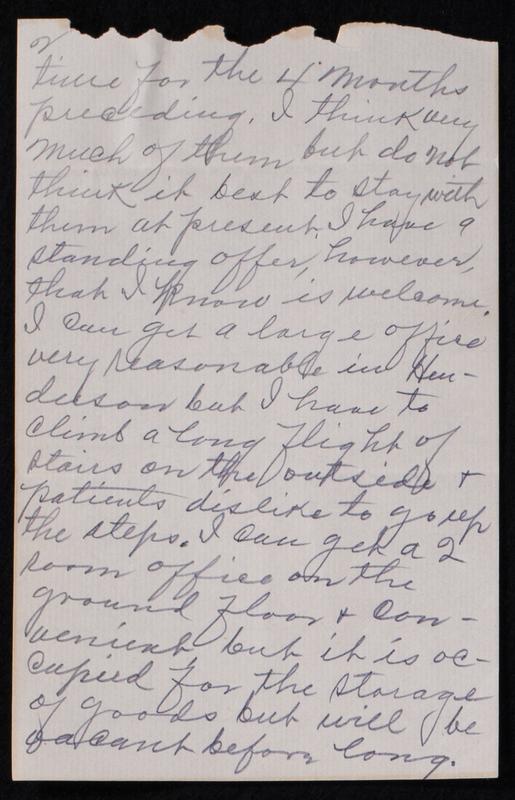 time for the 4 months
preceding. I think very
much of them but do not
think it best to stay with
them at present. I have a
standing offer, however,
that I know is welcome.
I can get a large office
very reasonable in Hen-
derson but I have to
climb a long flight of
stairs on the outside +
patients dislike to go up
the steps. I can get a 2
room office on the
ground floor + con-
venient but it is oc-
cupied for the storage
of goods but will be
vacant before long.